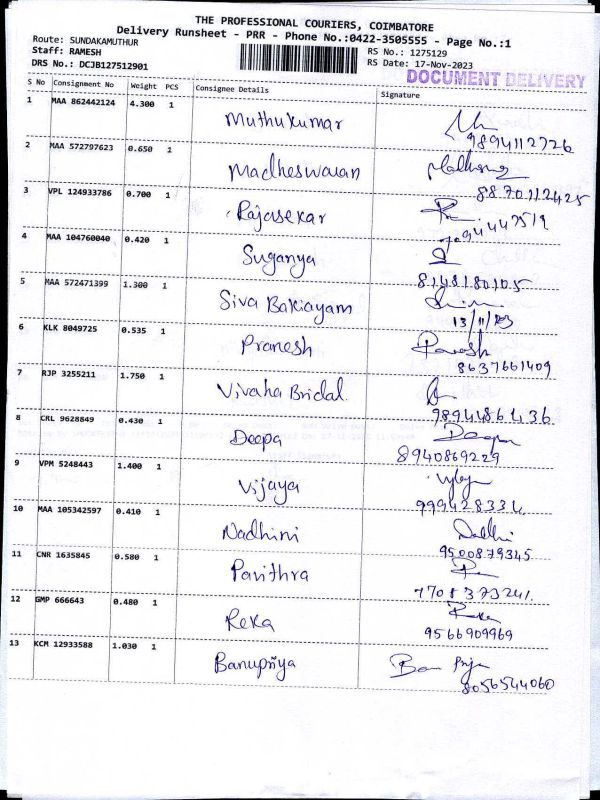 THE PROFESSIONAL COURIERS, COIMBATORE
Delivery Runsheet - PRR - Phone No.:0422-3505555 - Page No.:1
Route: SUNDAKAMUTHUR RS No.: 1275129
Staff: RAMESH RS Date: 17-Nov-2023
DRS No.: DCJB127512901 DOCUMENT DELIVERY
S No Consignment No Weight PCS Consignee Details Signature
1 MAA 862442124 4.300 1 Muthukumar
9894112726
2 MAA 572797623 0.650 1 Madheswaran
8870112425
3 VPL 124933786 0.700 1 Rajasekar
4 MAA 104760040 0.420 1 Suganya
8148180105
5 MAA 572471399 1.300 1 Siva Bakiayam
13/11/23
6 KLK 8049725 0.535 1 Pranesh
8637661409
7 RJP 3255211 1.750 1 Vivaha Bridal
9894486436
8 CRL 9628849 0.430 1 Deepa Deepa
8940869229
9 VPM 5248443 1.400 1 Vijaya
999428334
10 MAA 105342597 0.410 1 Nadhini
9500879345
11 CNR 1635845 0.580 1 Pavithra
7708373241
12 GMP 666643 0.480 1 Reka Reka
9566909969
13 KCM 12933588 1.030 1 Banupriya Banu Priya
8056544060